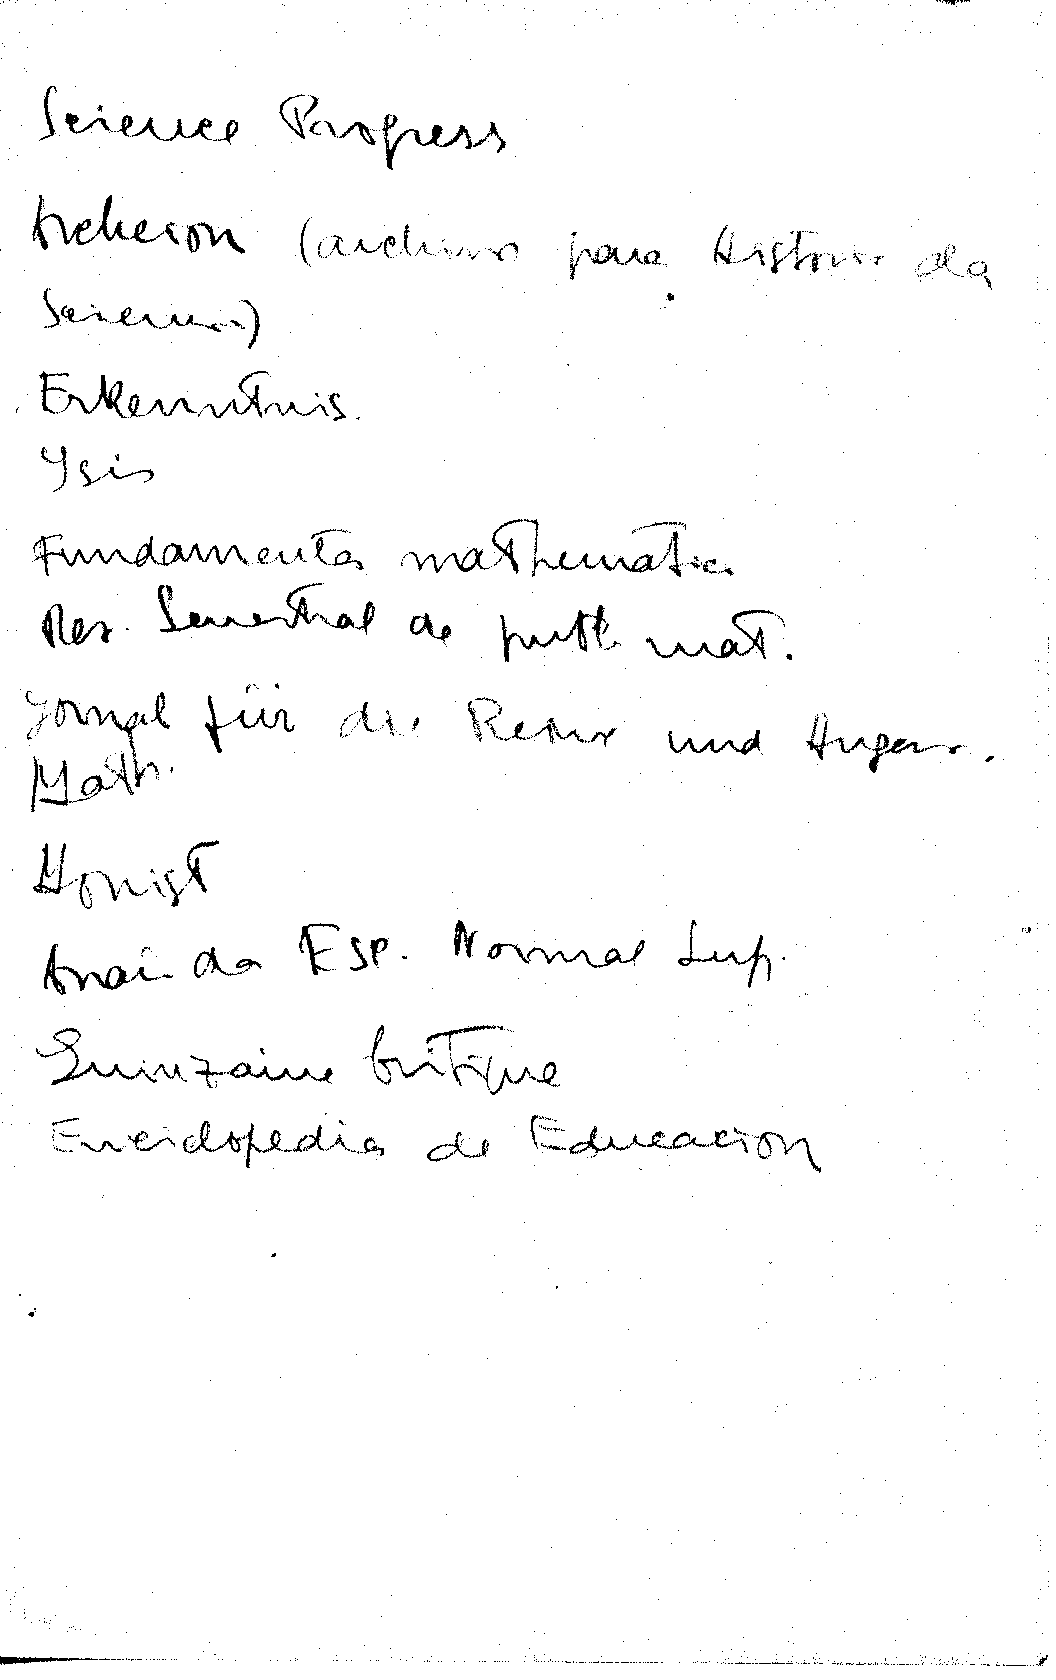 Science Progress
Archeion (archivo para Historia da
Sciencia)
Erkenntnis.
Ysis
Fundamenta mathematica
Rev. Semestral de publ. mat.
Jornal für die Reine und Angew.
Math.
Monist
Anais da Esc. Normal Sup.
Quinzaine Critique
Enciclopedia de Educacion